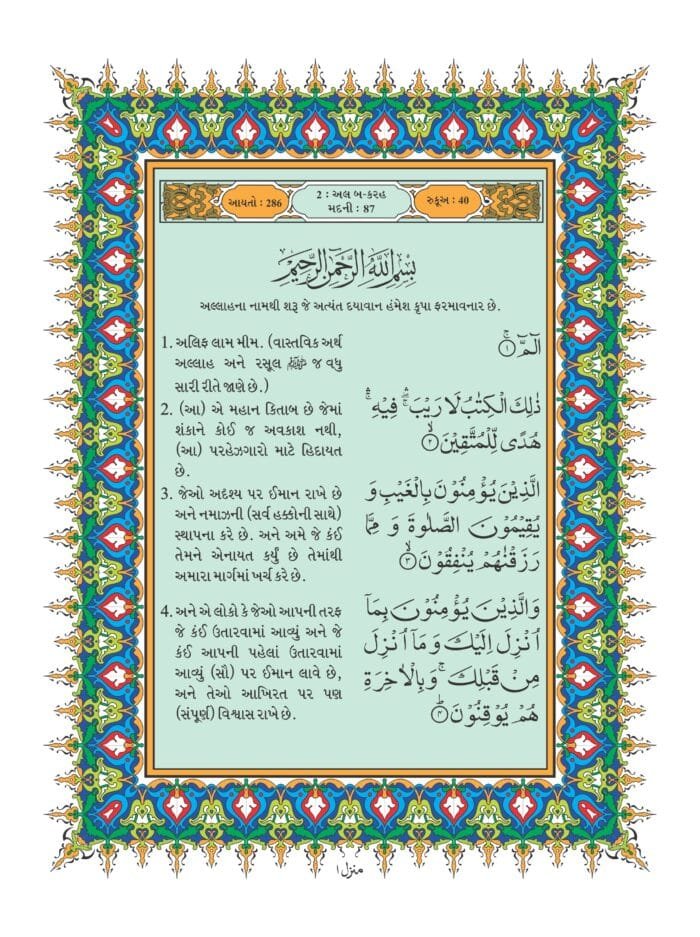 આયતો : 286
2 : અલ બ-કરહ
મદની : 87
રુકૂઅ : 40
بِسْمِ اللّٰهِ الرَّحْمٰنِ الرَّحِيْمِ
અલ્લાહના નામથી શરૂ જે અત્યંત દયાવાન હંમેશ કૃપા ફરમાવનાર છે.
1. અલિફ લામ મીમ. (વાસ્તવિક અર્થ
અલ્લાહ અને રસૂલ ﷺ જ વધુ
સારી રીતે જાણે છે.)
الٓمّٓ ۚ‏ ۝۱
2. (આ) એ મહાન કિતાબ છે જેમાં
શંકાને કોઈ જ અવકાશ નથી,
(આ) પરહેઝગારો માટે હિદાયત
છે.
ذٰلِكَ الْكِتٰبُ لَا رَيْبَ ۛۚ فِيْهِ ۛۚ
هُدًى لِّلْمُتَّقِيْنَ ۙ‏ ۝۲
3. જેઓ અદૃશ્ય પર ઈમાન રાખે છે
અને નમાઝની (સર્વ હક્કોની સાથે)
સ્થાપના કરે છે. અને અમે જે કંઈ
તેમને એનાયત કર્યું છે તેમાંથી
અમારા માર્ગમાં ખર્ચ કરે છે.
الَّذِيْنَ يُؤْمِنُوْنَ بِالْغَيْبِ وَ
يُقِيْمُوْنَ الصَّلٰوةَ وَ مِمَّا
رَزَقْنٰهُمْ يُنْفِقُوْنَ ۙ‏ ۝۳
4. અને એ લોકો કે જેઓ આપની તરફ
જે કંઈ ઉતારવામાં આવ્યું અને જે
કંઈ આપની પહેલાં ઉતારવામાં
આવ્યું (સૌ) પર ઈમાન લાવે છે,
અને તેઓ આખિરત પર પણ
(સંપૂર્ણ) વિશ્વાસ રાખે છે.
وَالَّذِيْنَ يُؤْمِنُوْنَ بِمَاۤ
اُنْزِلَ اِلَيْكَ وَمَاۤ اُنْزِلَ
مِنْ قَبْلِكَ ۚ وَبِالْاٰخِرَةِ
هُمْ يُوْقِنُوْنَ ؕ‏ ۝۴
منزل ۱